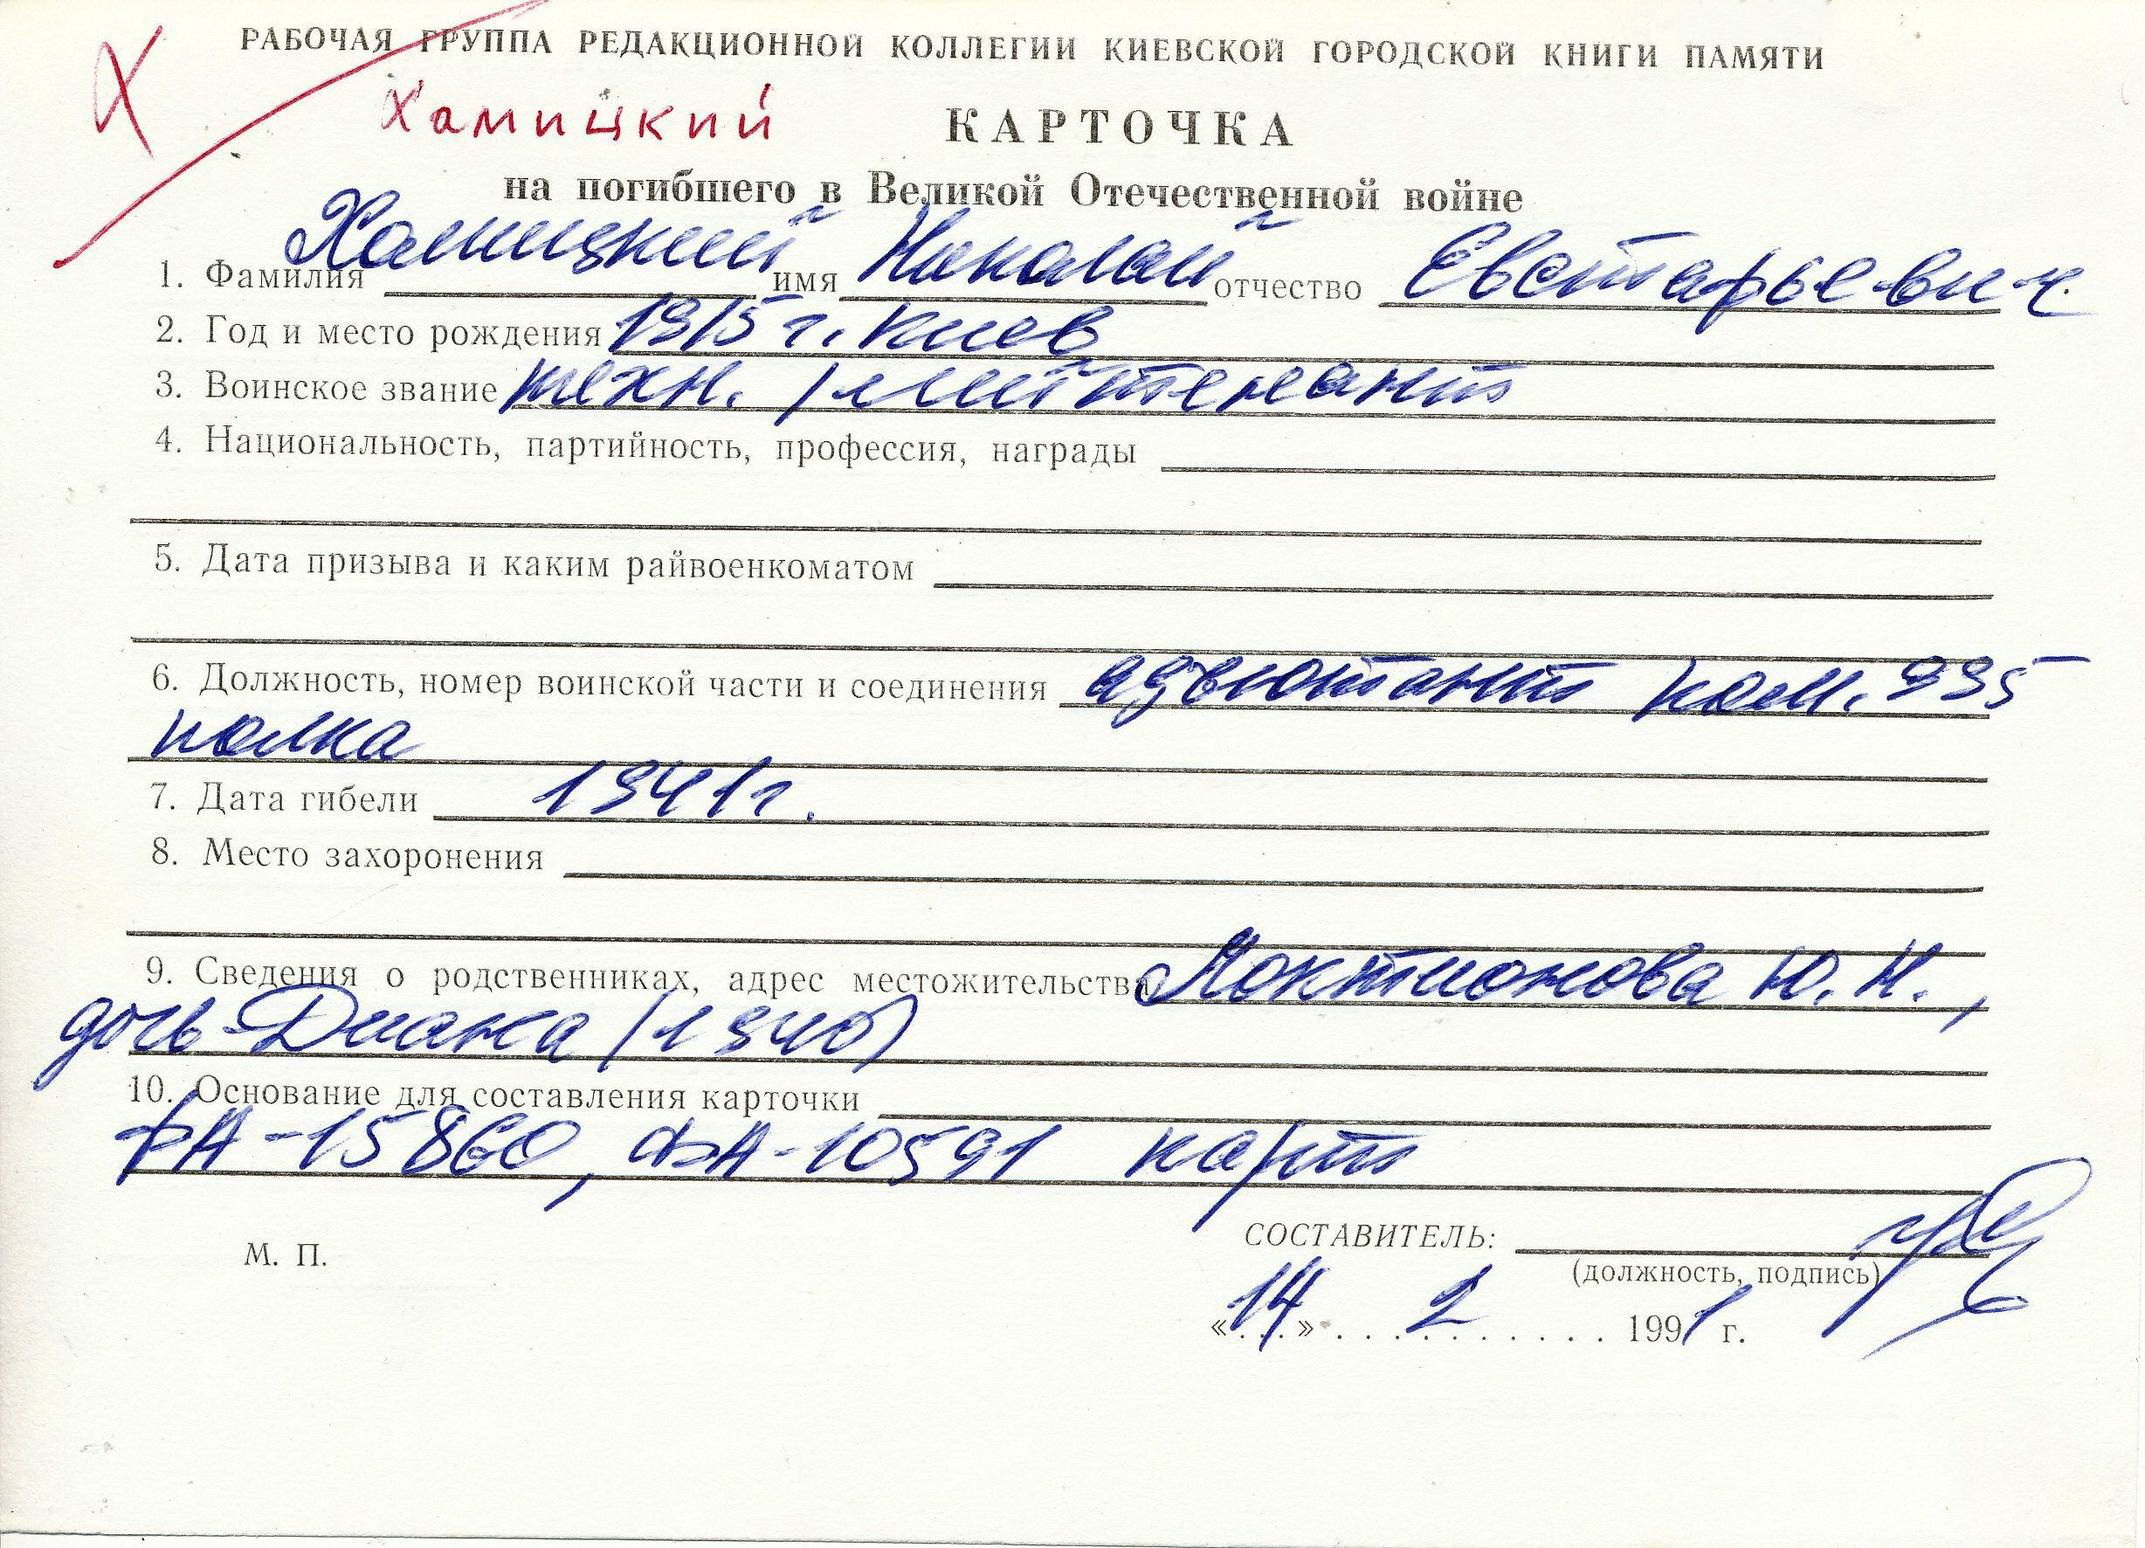 РАБОЧАЯ ГРУППА РЕДАКЦИОННОЙ КОЛЛЕГИИ КИЕВСКОЙ ГОРОДСКОЙ КНИГИ ПАМЯТИ
Х
Хамицкий КАРТОЧКА
на погибшего в Великой Отечественной войне
1. Фамилия Хамицкий имя Николай отчество Евстафьевич
2. Год и место рождения 1915 г. Киев
3. Воинское звание техн. лейтенант
4. Национальность, партийность, профессия, награды
5. Дата призыва и каким райвоенкоматом
6. Должность, номер воинской части и соединения адъютант ком. 995
полка
7. Дата гибели 1941 г.
8. Место захоронения
9. Сведения о родственниках, адрес местожительства Локтионова Ю. Н.,
дочь - Диана (1940)
10. Основание для составления карточки
фА - 15860, фА - 10591 карт
СОСТАВИТЕЛЬ:
М. П.
(должность, подпись)
«14» 2 1991 г.